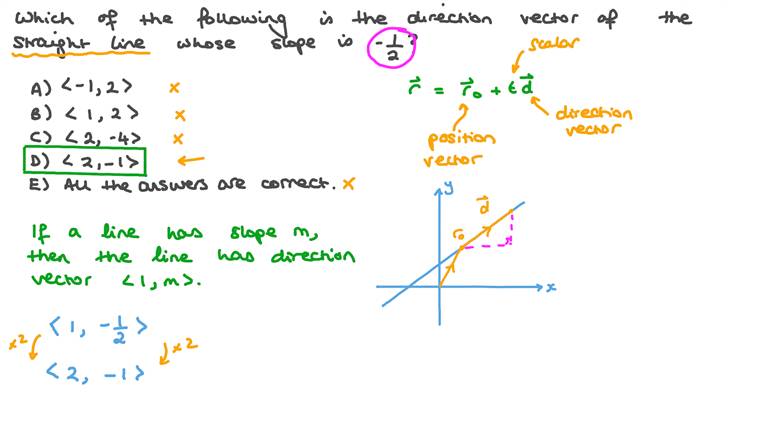 Which of the following is the direction vector of the
straight line whose slope is -1/2?
A) <-1, 2> ×
B) <1, 2> ×
C) <2, -4> ×
D) <2, -1> ←
E) All the answers are correct. ×
scalar
r⃗ = r⃗₀ + t d⃗
position
vector
direction
vector
If a line has slope m,
then the line has direction
vector <1, m>.
y
d⃗
r₀
x
<1, -1/2>
×2
×2
<2, -1>